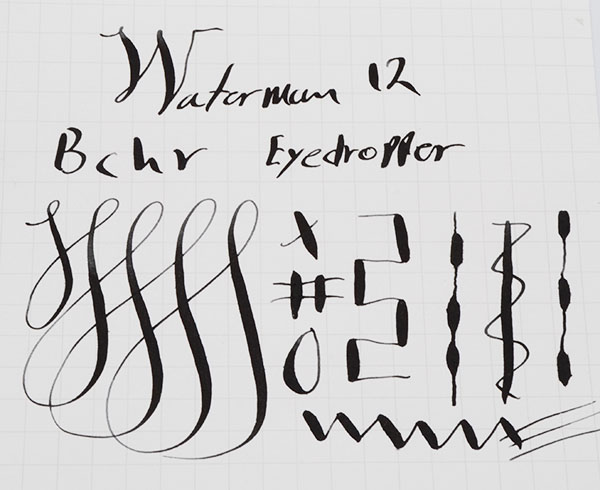 Waterman 12
Bchr Eyedropper